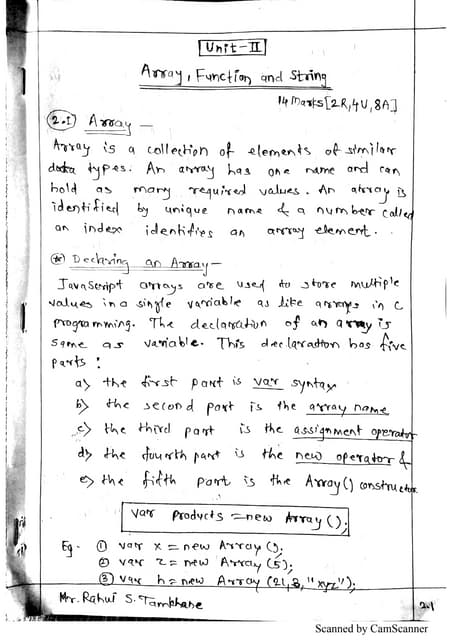 Unit-II
Array, Function and String
14 Marks [2R,4U,8A]
2.1 Array —
Array is a collection of elements of similar
data types. An array has one name and can
hold as many required values. An array is
identified by unique name & a number called
an index identifies an array element.
* Declaring an Array —
JavaScript arrays are used to store multiple
values in a single variable as like arrays in C
programming. The declaration of an array is
same as variable. This declaration has five
parts :
a) the first part is var syntax
b) the second part is the array name
c) the third part is the assignment operator
d) the fourth part is the new operator &
e) the fifth part is the Array() constructor
var products = new Array();
Eg - ① var x = new Array();
② var z = new Array(5);
③ var h = new Array(21,3,"xyz");
Mr. Rahul S. Tamkhane
2.1
Scanned by CamScanner